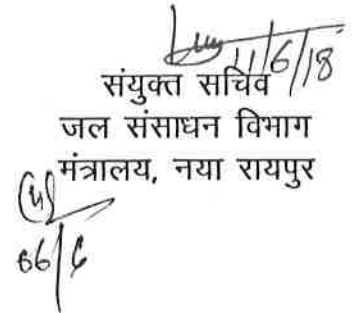 11/6/18
संयुक्त सचिव
जल संसाधन विभाग
मंत्रालय, नया रायपुर
06/6